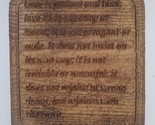 Love is patient and kind,
love
boast; it is not arrogant or
rude. It does not insist on
its own way; it is not
irritable or resentful; it
does not rejoice in wrong
doing, but rejoices with
the truth.